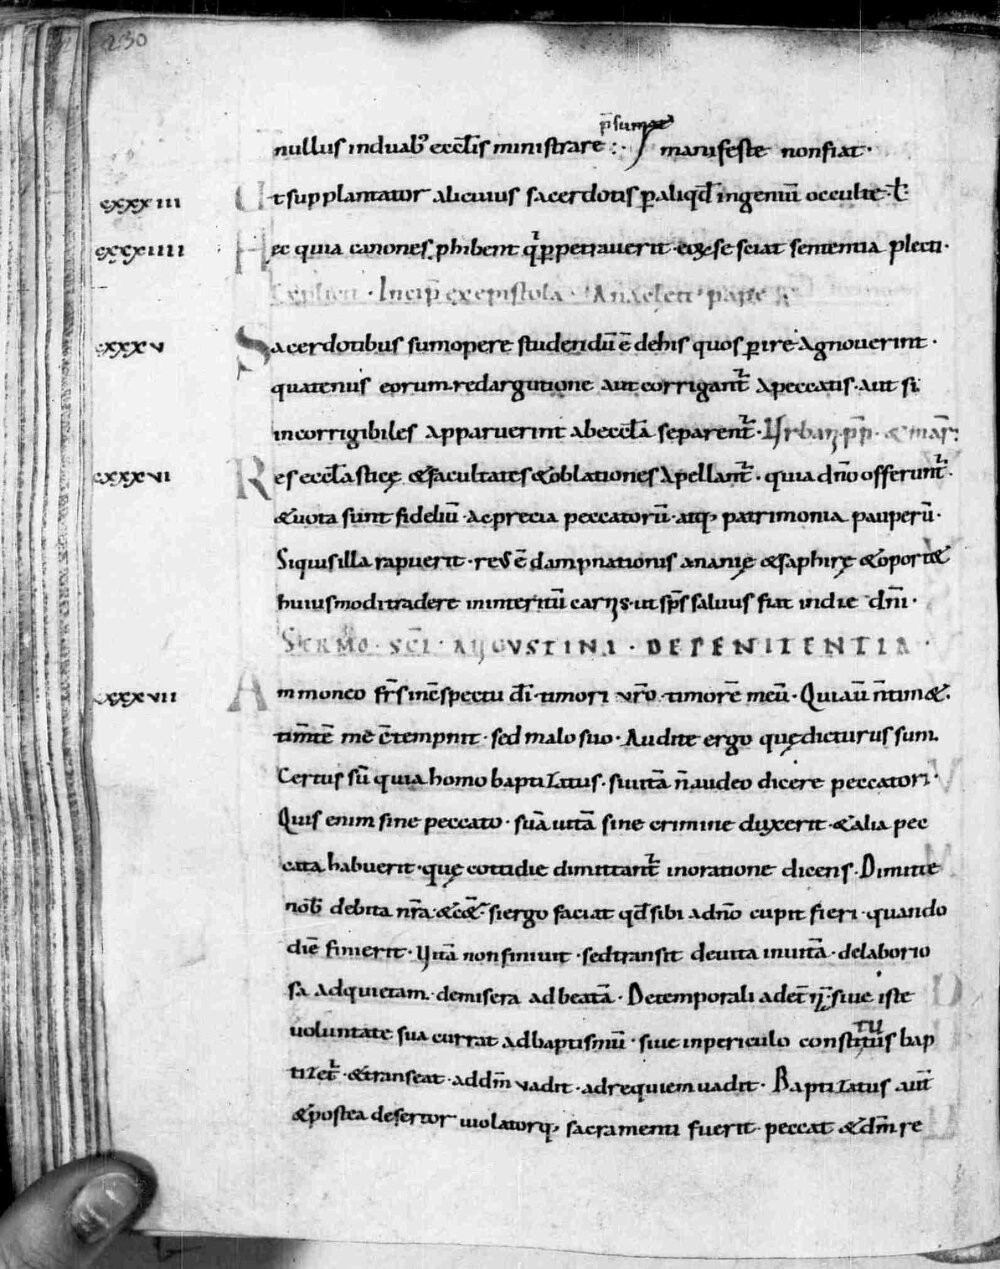 230
p̄sumat
nullus induab᷒ eccl̄is ministrare :· manifeste non fiat·
cxxxiii Ut supplantator alicuius sacerdotis p̱ aliqd̄ ingeniū occulte ł
cxxxiiii Hec quia canones phibent q̇ p̱petrauerit · eoꝝ se sciat sententia plecti·
Explicit · Incip̄ ex epistola · Anacleti pape
cxxxv Sacerdotibus sumopere studendū ē de his quos perire agnouerint ·
quatenus eorum redargutione aut corrigant᷑ a peccatis · aut si
incorrigibiles apparuerint ab eccl̄a separent᷑ · Urbani pp̄ · & mar̄·
cxxxvi Res eccl̄asticę & facultates & oblationes apellant᷑ · quia dn̄o offerunt᷑ ·
& uota sunt fideliū · ac precia peccatorū · atq; patrimonia pauperū ·
Siquis illa rapuerit · reus ē dampnationis ananię & saphirę & oport&
huiusmodi tradere in interitū carnis · ut sp̄s saluus fiat in die dn̄i ·
SERMO · SC̄I · AUGUSTINI · DE PENITENTIA ·
cxxxvii Ammoneo fr̄s in c̄spectu dī · timori vr̄o timorē meū · Qui aū n̄ tim& ·
tim̄tē me c̄tempnit · sed malo suo · Audite ergo quę dicturus sum
Certus sū quia homo baptizatus · si uitā n̄ audeo dicere peccatori ·
Quis enim sine peccato · suā uitā sine crimine duxerit · & alia pec
cata habuerit · quę cottidie dimittant᷑ in oratione dicens · Dimitte
nob̄ debita nr̄a · & c& · si ergo faciat qd̄ sibi a dn̄o cupit fieri · quando
diē finierit · Uitā non finiuit · sed transit de uita in uitā · de laborio
sa ad quietam · de misera ad beatā · De temporali ad et̄nā · siue iste
uoluntate sua currat ad baptismū · siue in periculo constitutus bap
tizet᷑ · & transeat · ad dm̄ vadit · ad requiem uadit · Baptizatus aut̄
& postea desertor uiolatorq; sacramenti fuerit · peccat & dm̄ re